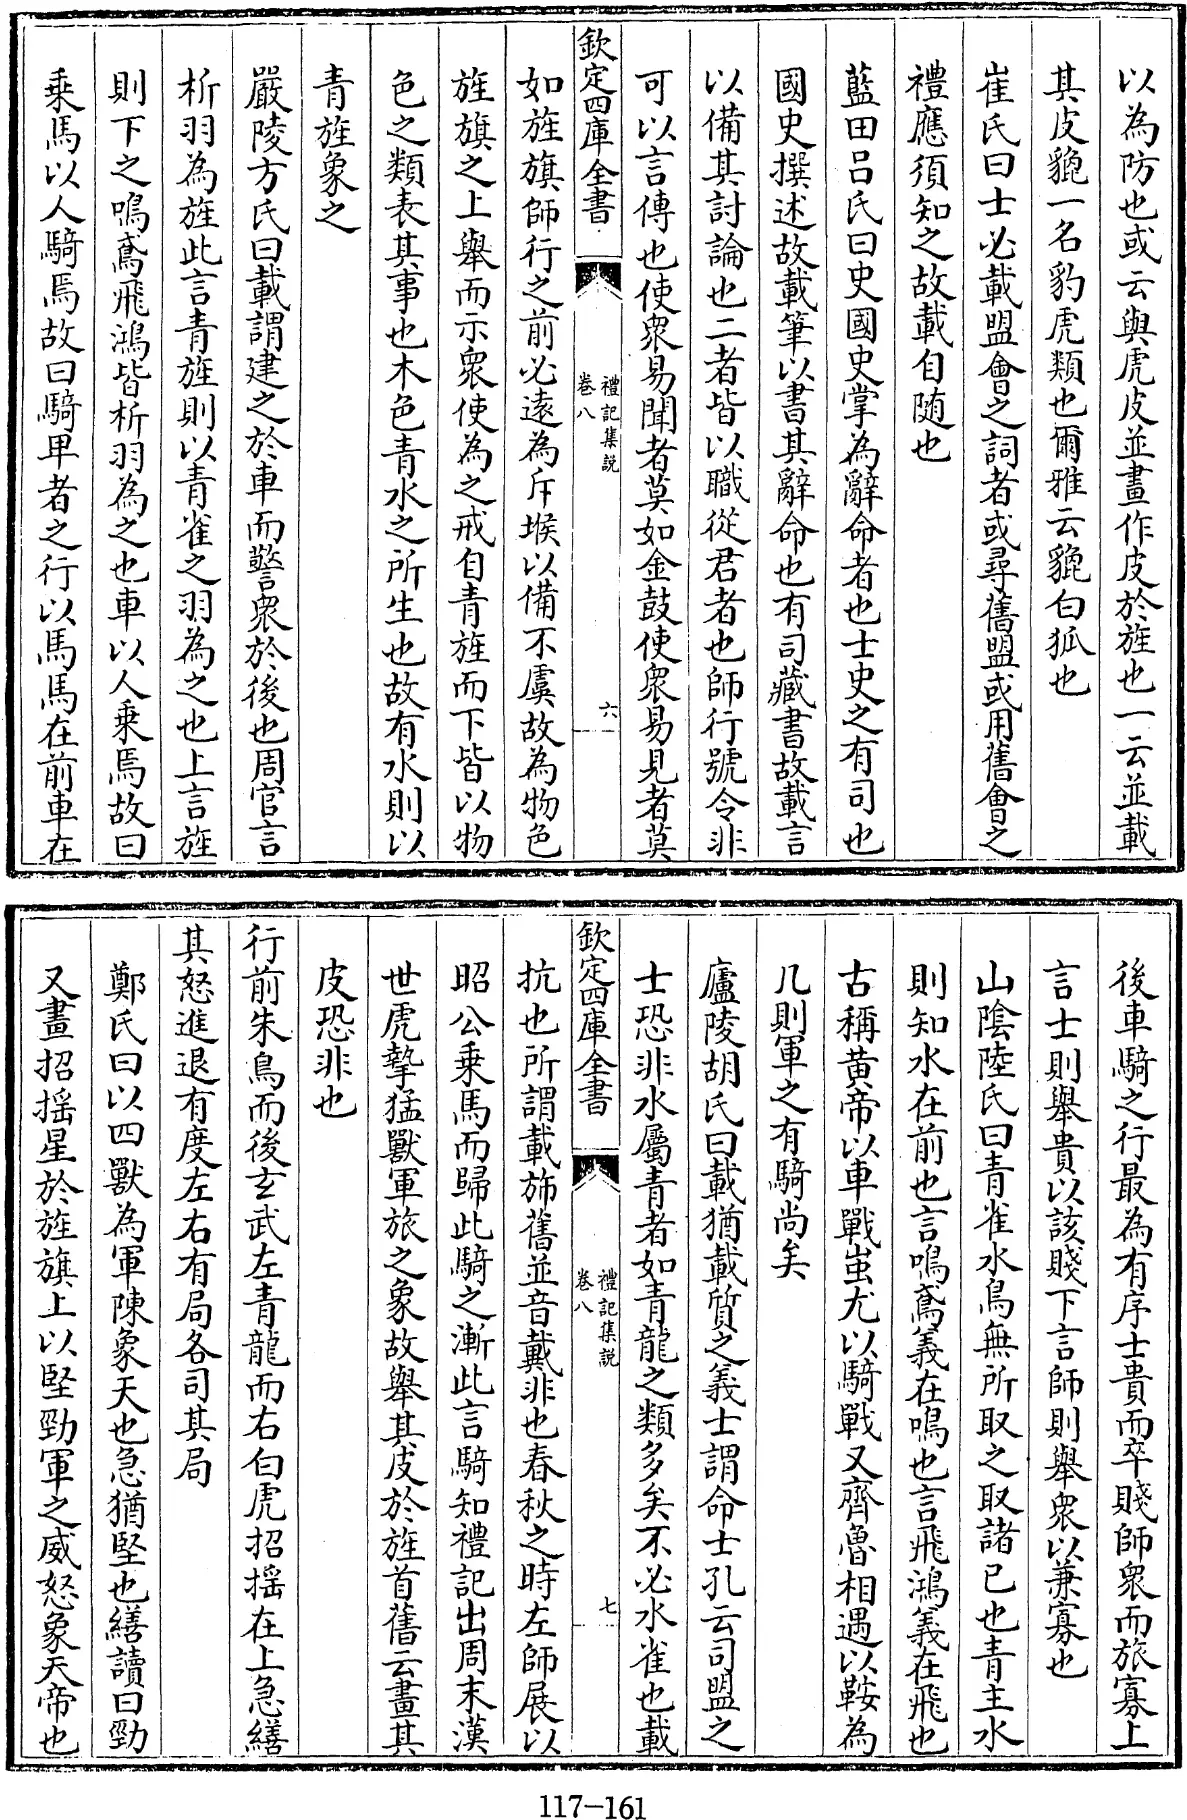 以為防也或云與虎皮並畫作皮於旌也一云並載
其皮貔一名豹虎類也爾雅云貔白狐也
崔氏曰士必載盟會之詞者或尋舊盟或用舊會之
禮應須知之故載自随也
藍田吕氏曰史國史掌為辭命者也士史之有司也
國史撰述故載筆以書其辭命也有司藏書故載言
以備其討論也二者皆以職從君者也師行號令非
可以言傳也使衆易聞者莫如金鼓使衆易見者莫
欽定四庫全書
禮記集說
卷八
六
如旌旗師行之前必遠為斥堠以備不虞故為物色
旌旗之上舉而示衆使為之戒自青旌而下皆以物
色之類表其事也木色青水之所生也故有水則以
青旌象之
嚴陵方氏曰載謂建之於車而警衆於後也周官言
析羽為旌此言青旌則以青雀之羽為之也上言旌
則下之鳴鳶飛鴻皆析羽為之也車以人乘焉故曰
乘馬以人騎焉故曰騎卑者之行以馬馬在前車在
後車騎之行最為有序士貴而卒賤師衆而旅寡上
言士則舉貴以該賤下言師則舉衆以兼寡也
山陰陸氏曰青雀水鳥無所取之取諸已也青主水
則知水在前也言鳴鳶義在鳴也言飛鴻義在飛也
古稱黄帝以車戰蚩尤以騎戰又齊魯相遇以鞍為
几則軍之有騎尚矣
廬陵胡氏曰載猶載質之義士謂命士孔云司盟之
士恐非水屬青者如青龍之類多矣不必水雀也載
欽定四庫全書
禮記集說
卷八
七
抗也所謂載斾舊並音戴非也春秋之時左師展以
昭公乘馬而歸此騎之漸此言騎知禮記出周末漢
世虎摯猛獸軍旅之象故舉其皮於旌首舊云畫其
皮恐非也
行前朱鳥而後玄武左青龍而右白虎招揺在上急繕
其怒進退有度左右有局各司其局
鄭氏曰以四獸為軍陳象天也急猶堅也繕讀曰勁
又畫招揺星於旌旗上以堅勁軍之威怒象天帝也
117-161